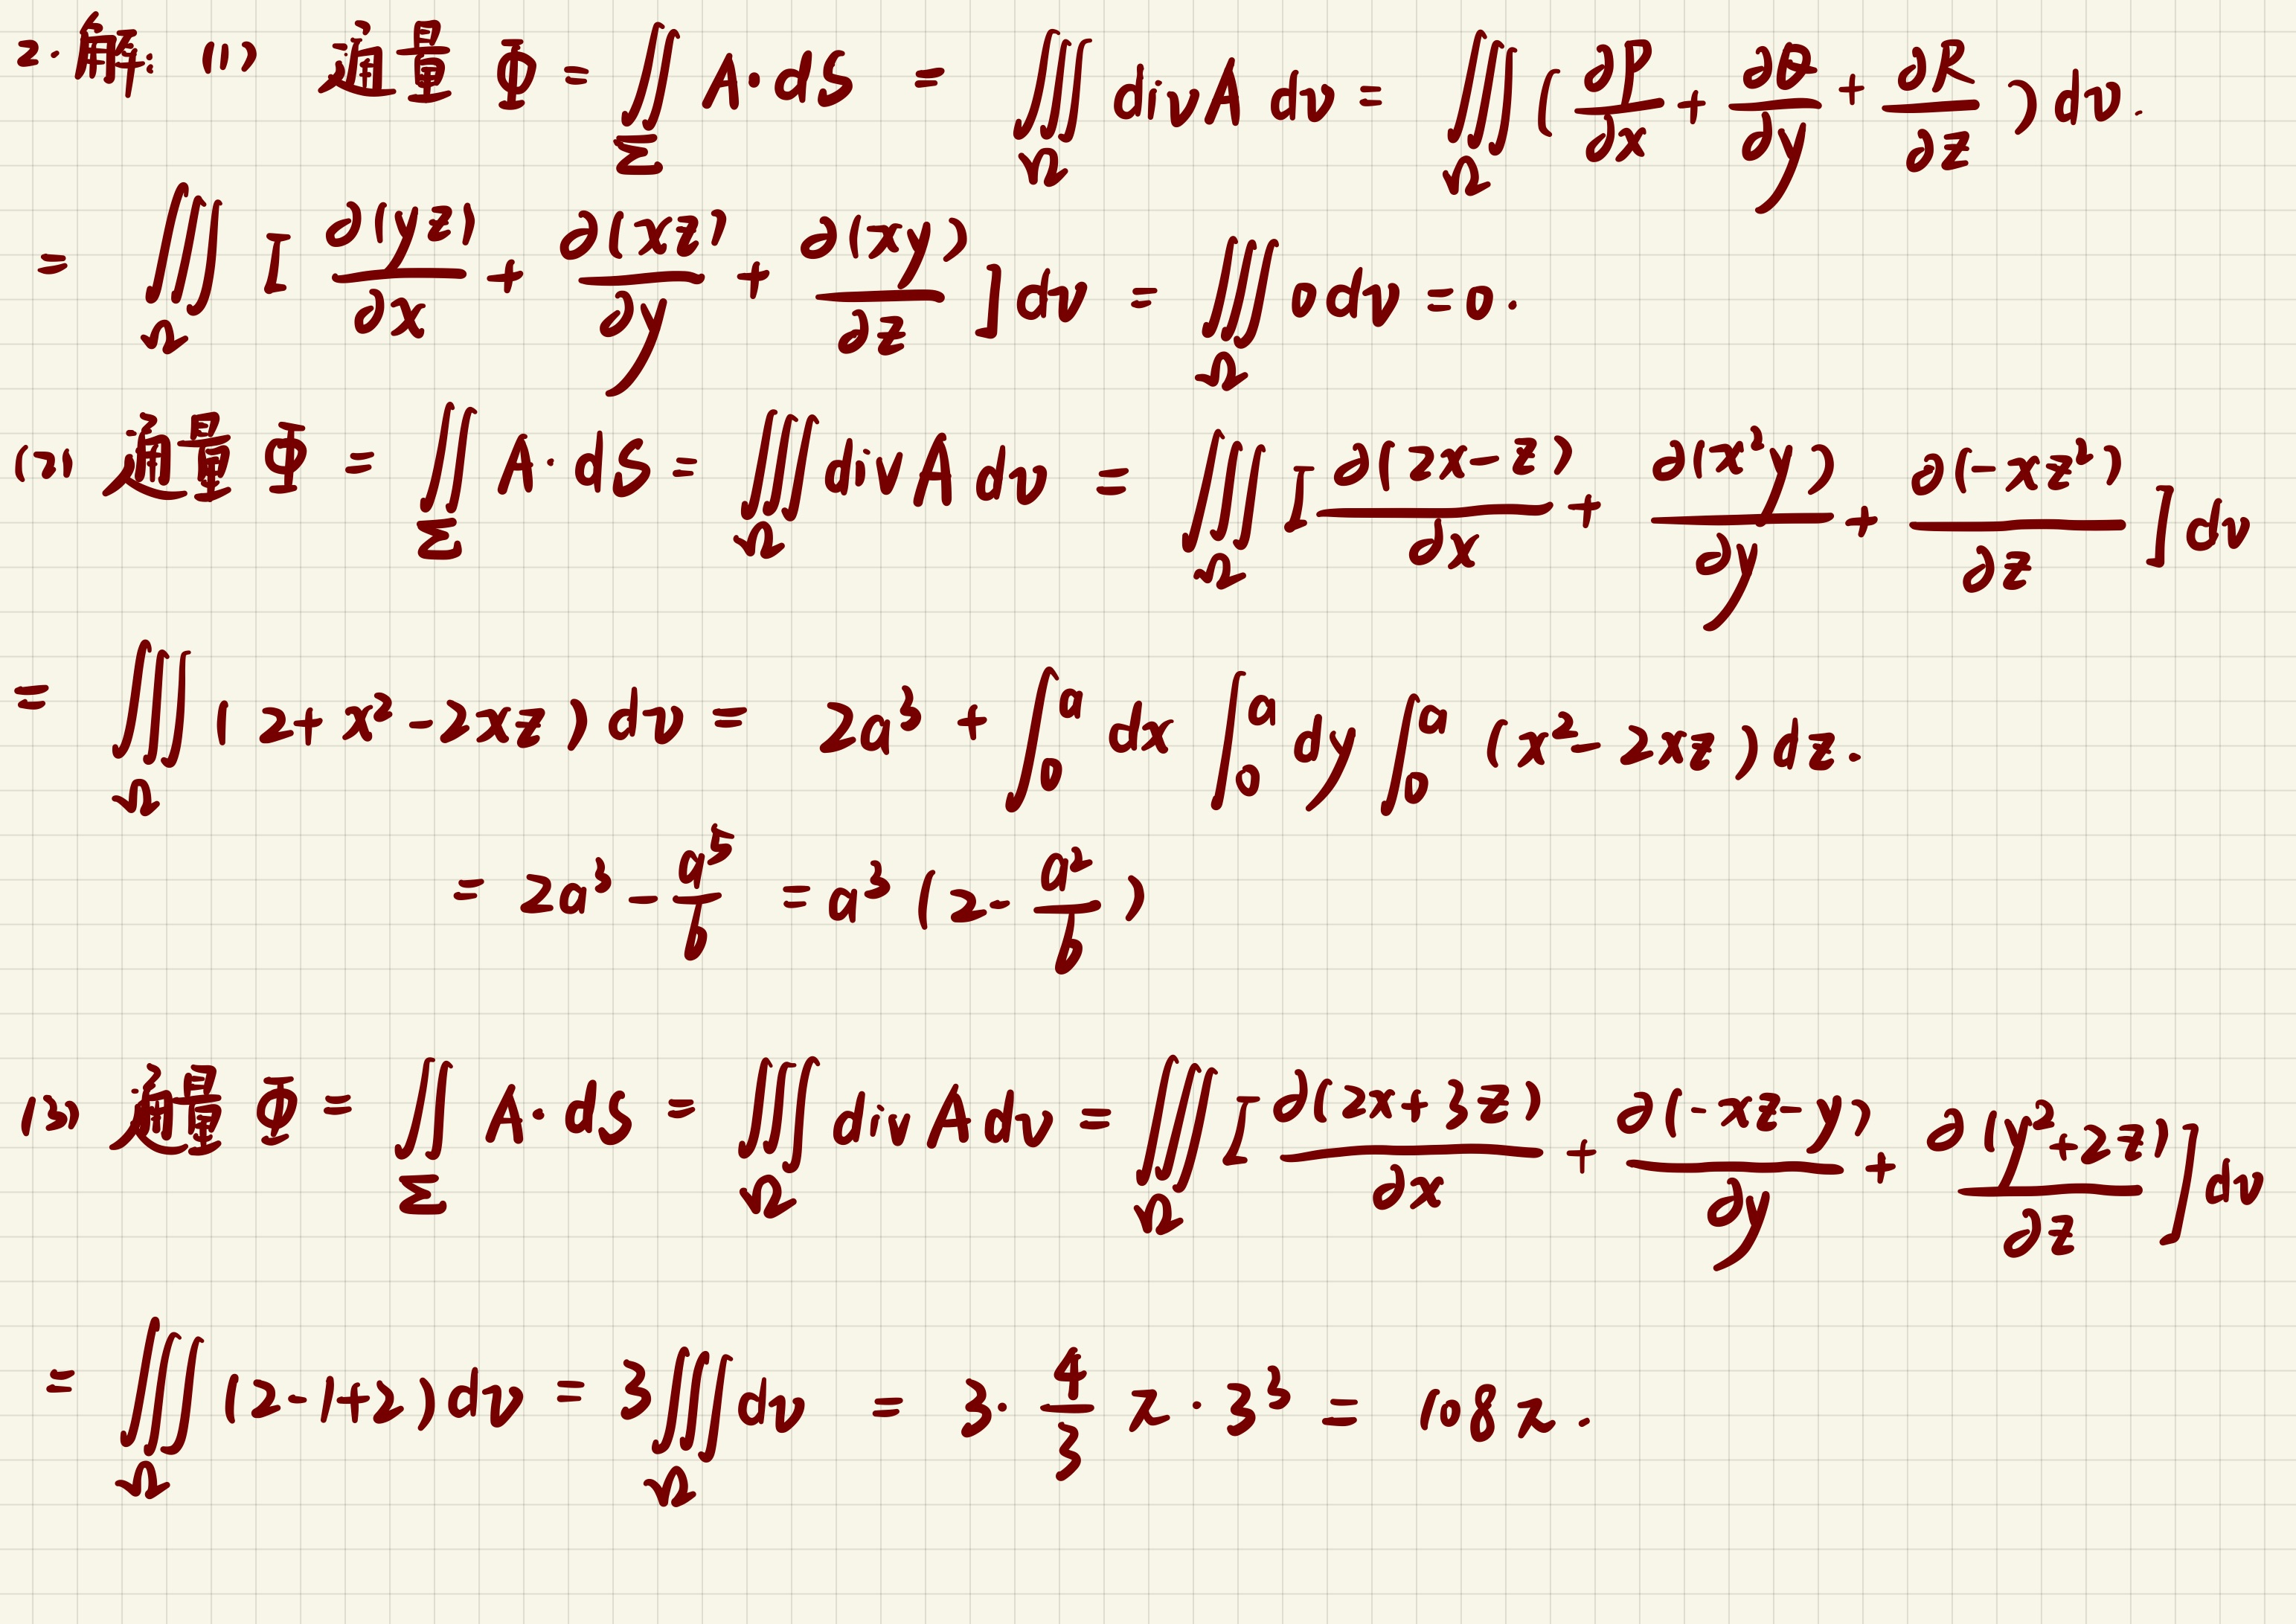 2. 解: (1) 通量 Φ = ∬_Σ A·dS = ∭_Ω divA dv = ∭_Ω (∂P/∂x + ∂Q/∂y + ∂R/∂z) dv.
= ∭_Ω [∂(yz)/∂x + ∂(xz)/∂y + ∂(xy)/∂z] dv = ∭_Ω 0dv = 0.
(2) 通量 Φ = ∬_Σ A·dS = ∭_Ω divA dv = ∭_Ω [∂(2x-z)/∂x + ∂(x²y)/∂y + ∂(-xz²)/∂z] dv
= ∭_Ω (2+x²-2xz) dv = 2a³ + ∫_0^a dx ∫_0^a dy ∫_0^a (x²-2xz) dz.
= 2a³ - a⁵/6 = a³(2 - a²/6)
(3) 通量 Φ = ∬_Σ A·dS = ∭_Ω div A dv = ∭_Ω [∂(2x+3z)/∂x + ∂(-xz-y)/∂y + ∂(y²+2z)/∂z] dv
= ∭_Ω (2-1+2) dv = 3∭_Ω dv = 3·4/3 π·3³ = 108π.